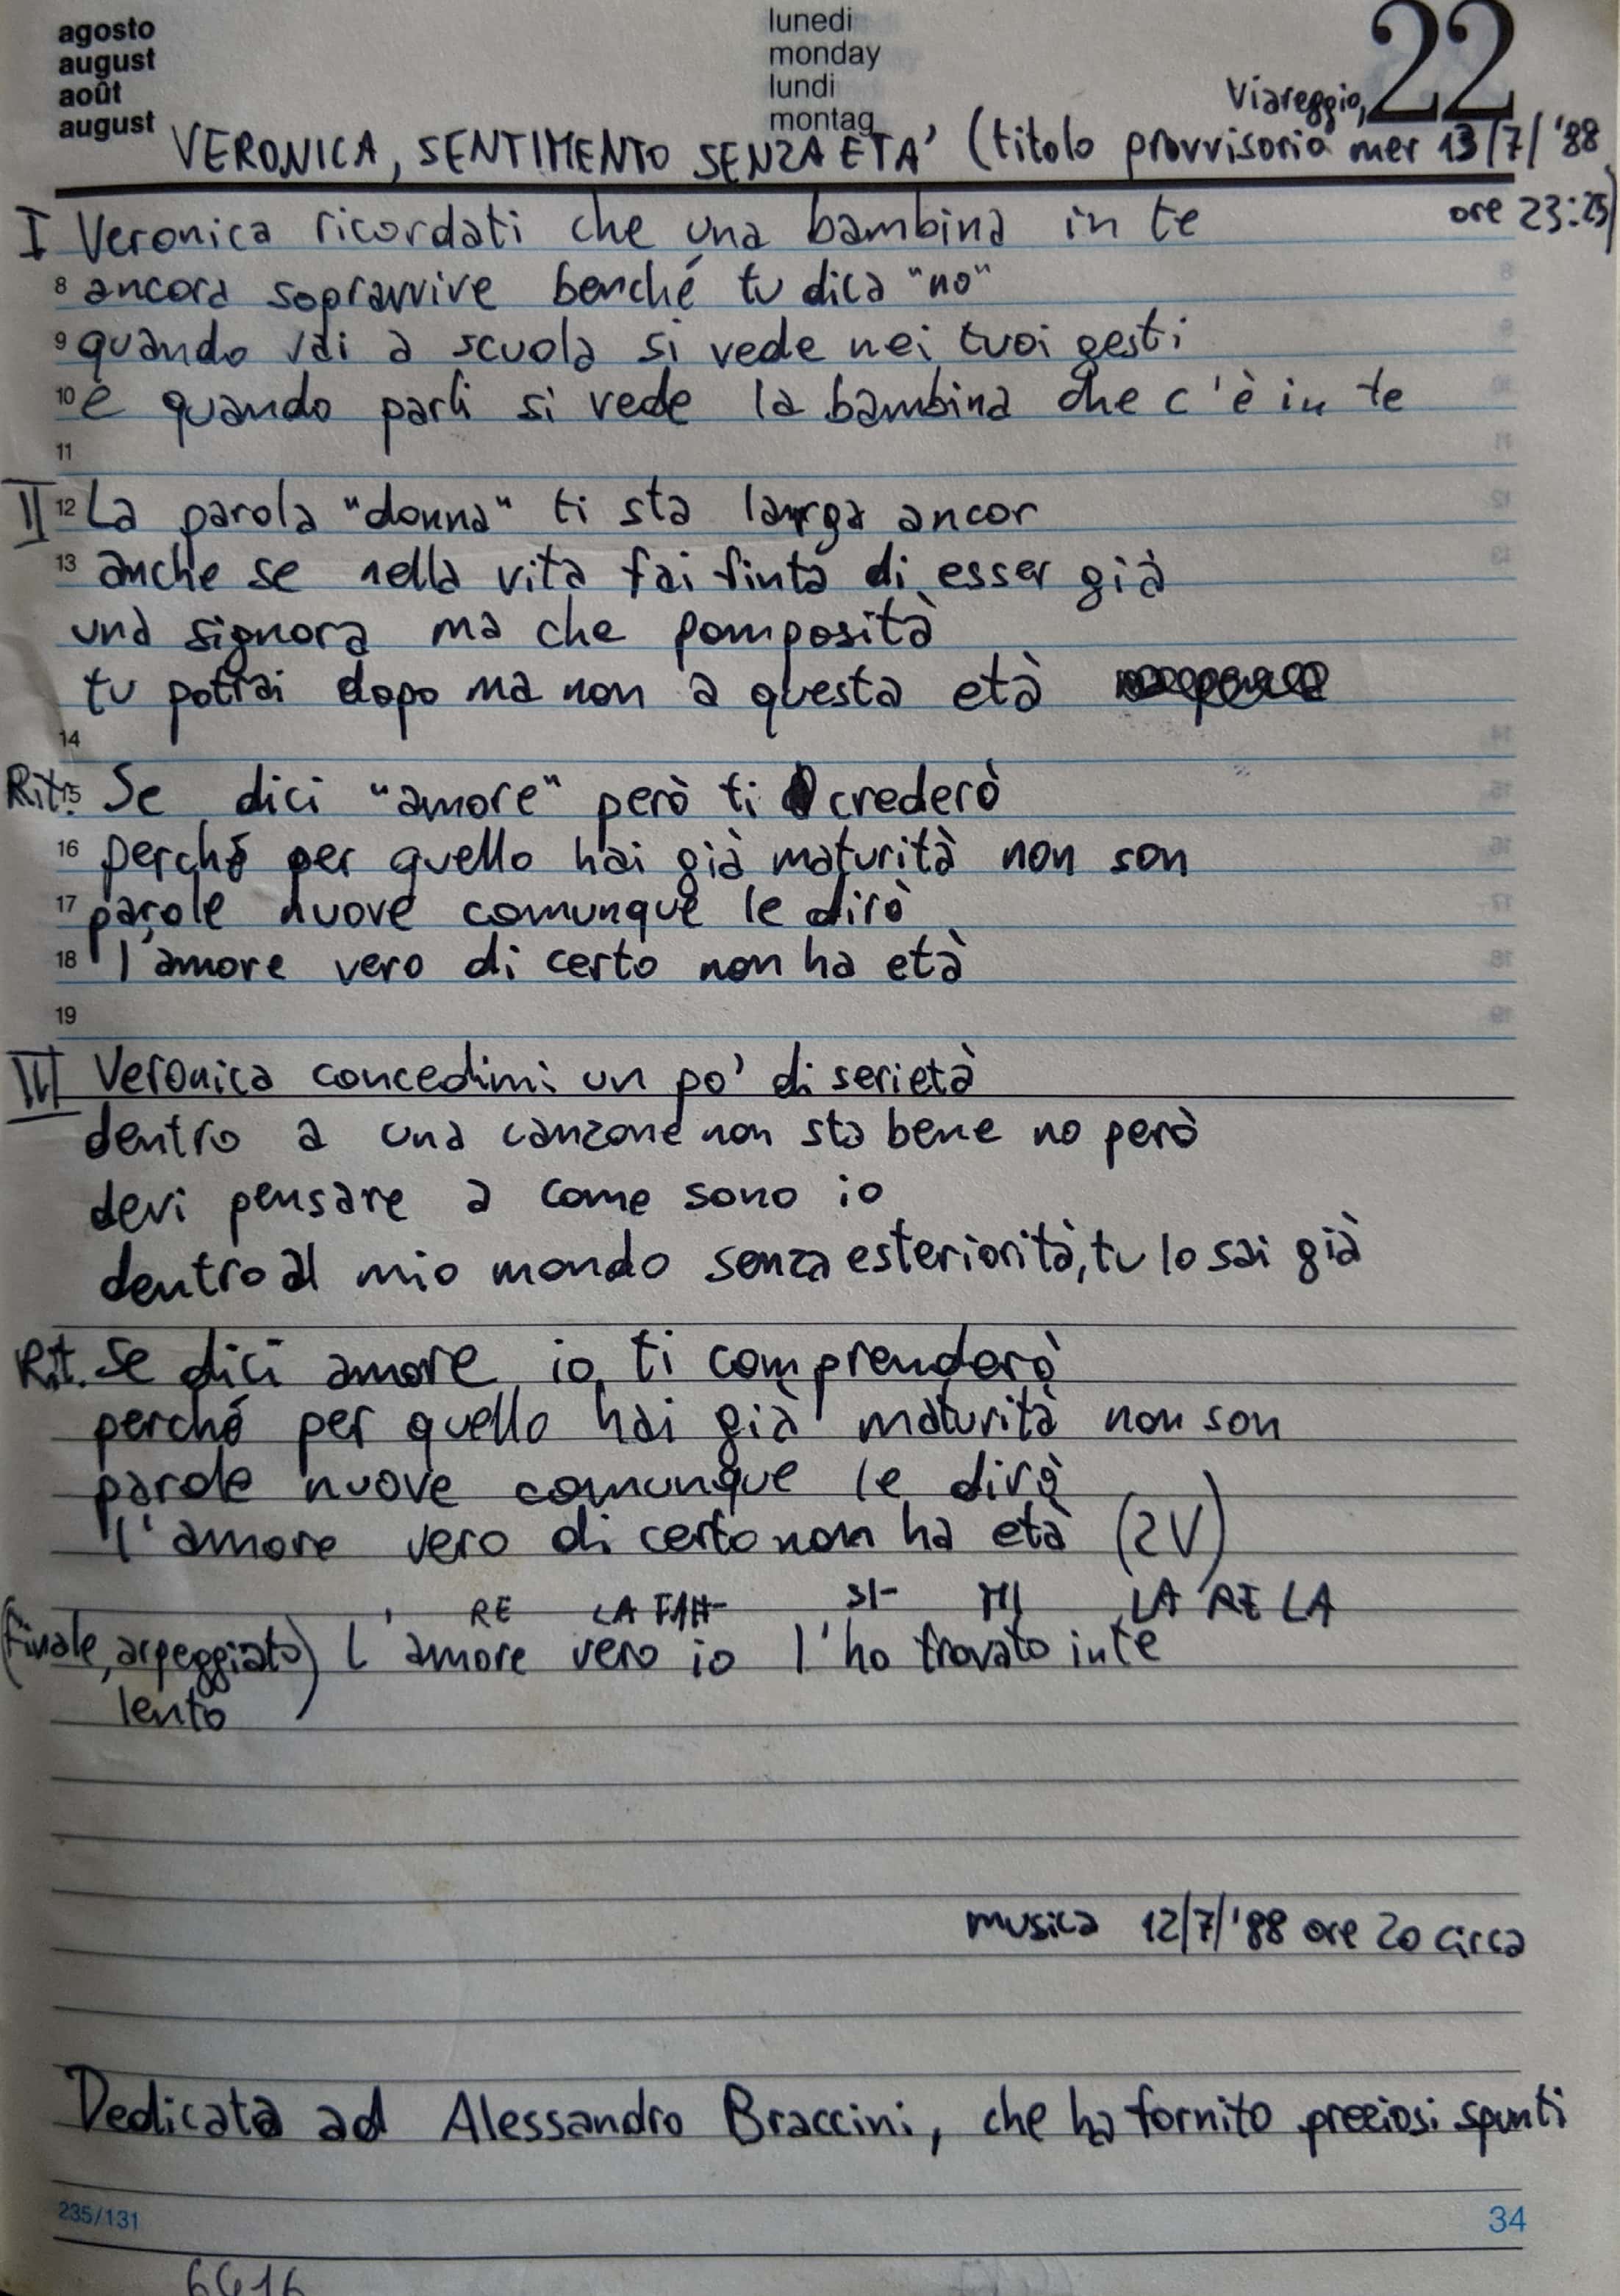 agosto
august
août
august
lunedi
monday
lundi
montag
22
Viareggio,
VERONICA, SENTIMENTO SENZA ETA' (titolo provvisorio mer 13/7/'88
ore 23:25)
I Veronica ricordati che una bambina in te
8 ancora sopravvive benché tu dica "no"
9 quando vai a scuola si vede nei tuoi gesti
10 e quando parli si vede la bambina che c'è in te
11
II 12 La parola "donna" ti sta larga ancor
13 anche se nella vita fai finta di esser già
una signora ma che pomposità
tu potrai dopo ma non a questa età
14
Rit. 15 Se dici "amore" però ti crederò
16 perché per quello hai già maturità non son
17 parole nuove comunque le dirò
18 l'amore vero di certo non ha età
19
III Veronica concedimi un po' di serietà
dentro a una canzone non sta bene no però
devi pensare a come sono io
dentro al mio mondo senza esteriorità, tu lo sai già
Rit. Se dici amore io ti comprenderò
perché per quello hai già maturità non son
parole nuove comunque le dirò
l'amore vero di certo non ha età (2V)
RE LA FA# SI- MI LA RE LA
(finale, arpeggiato) L'amore vero io l'ho trovato in te
lento
musica 12/7/'88 ore 20 circa
Dedicata ad Alessandro Braccini, che ha fornito preziosi spunti
235/131
34